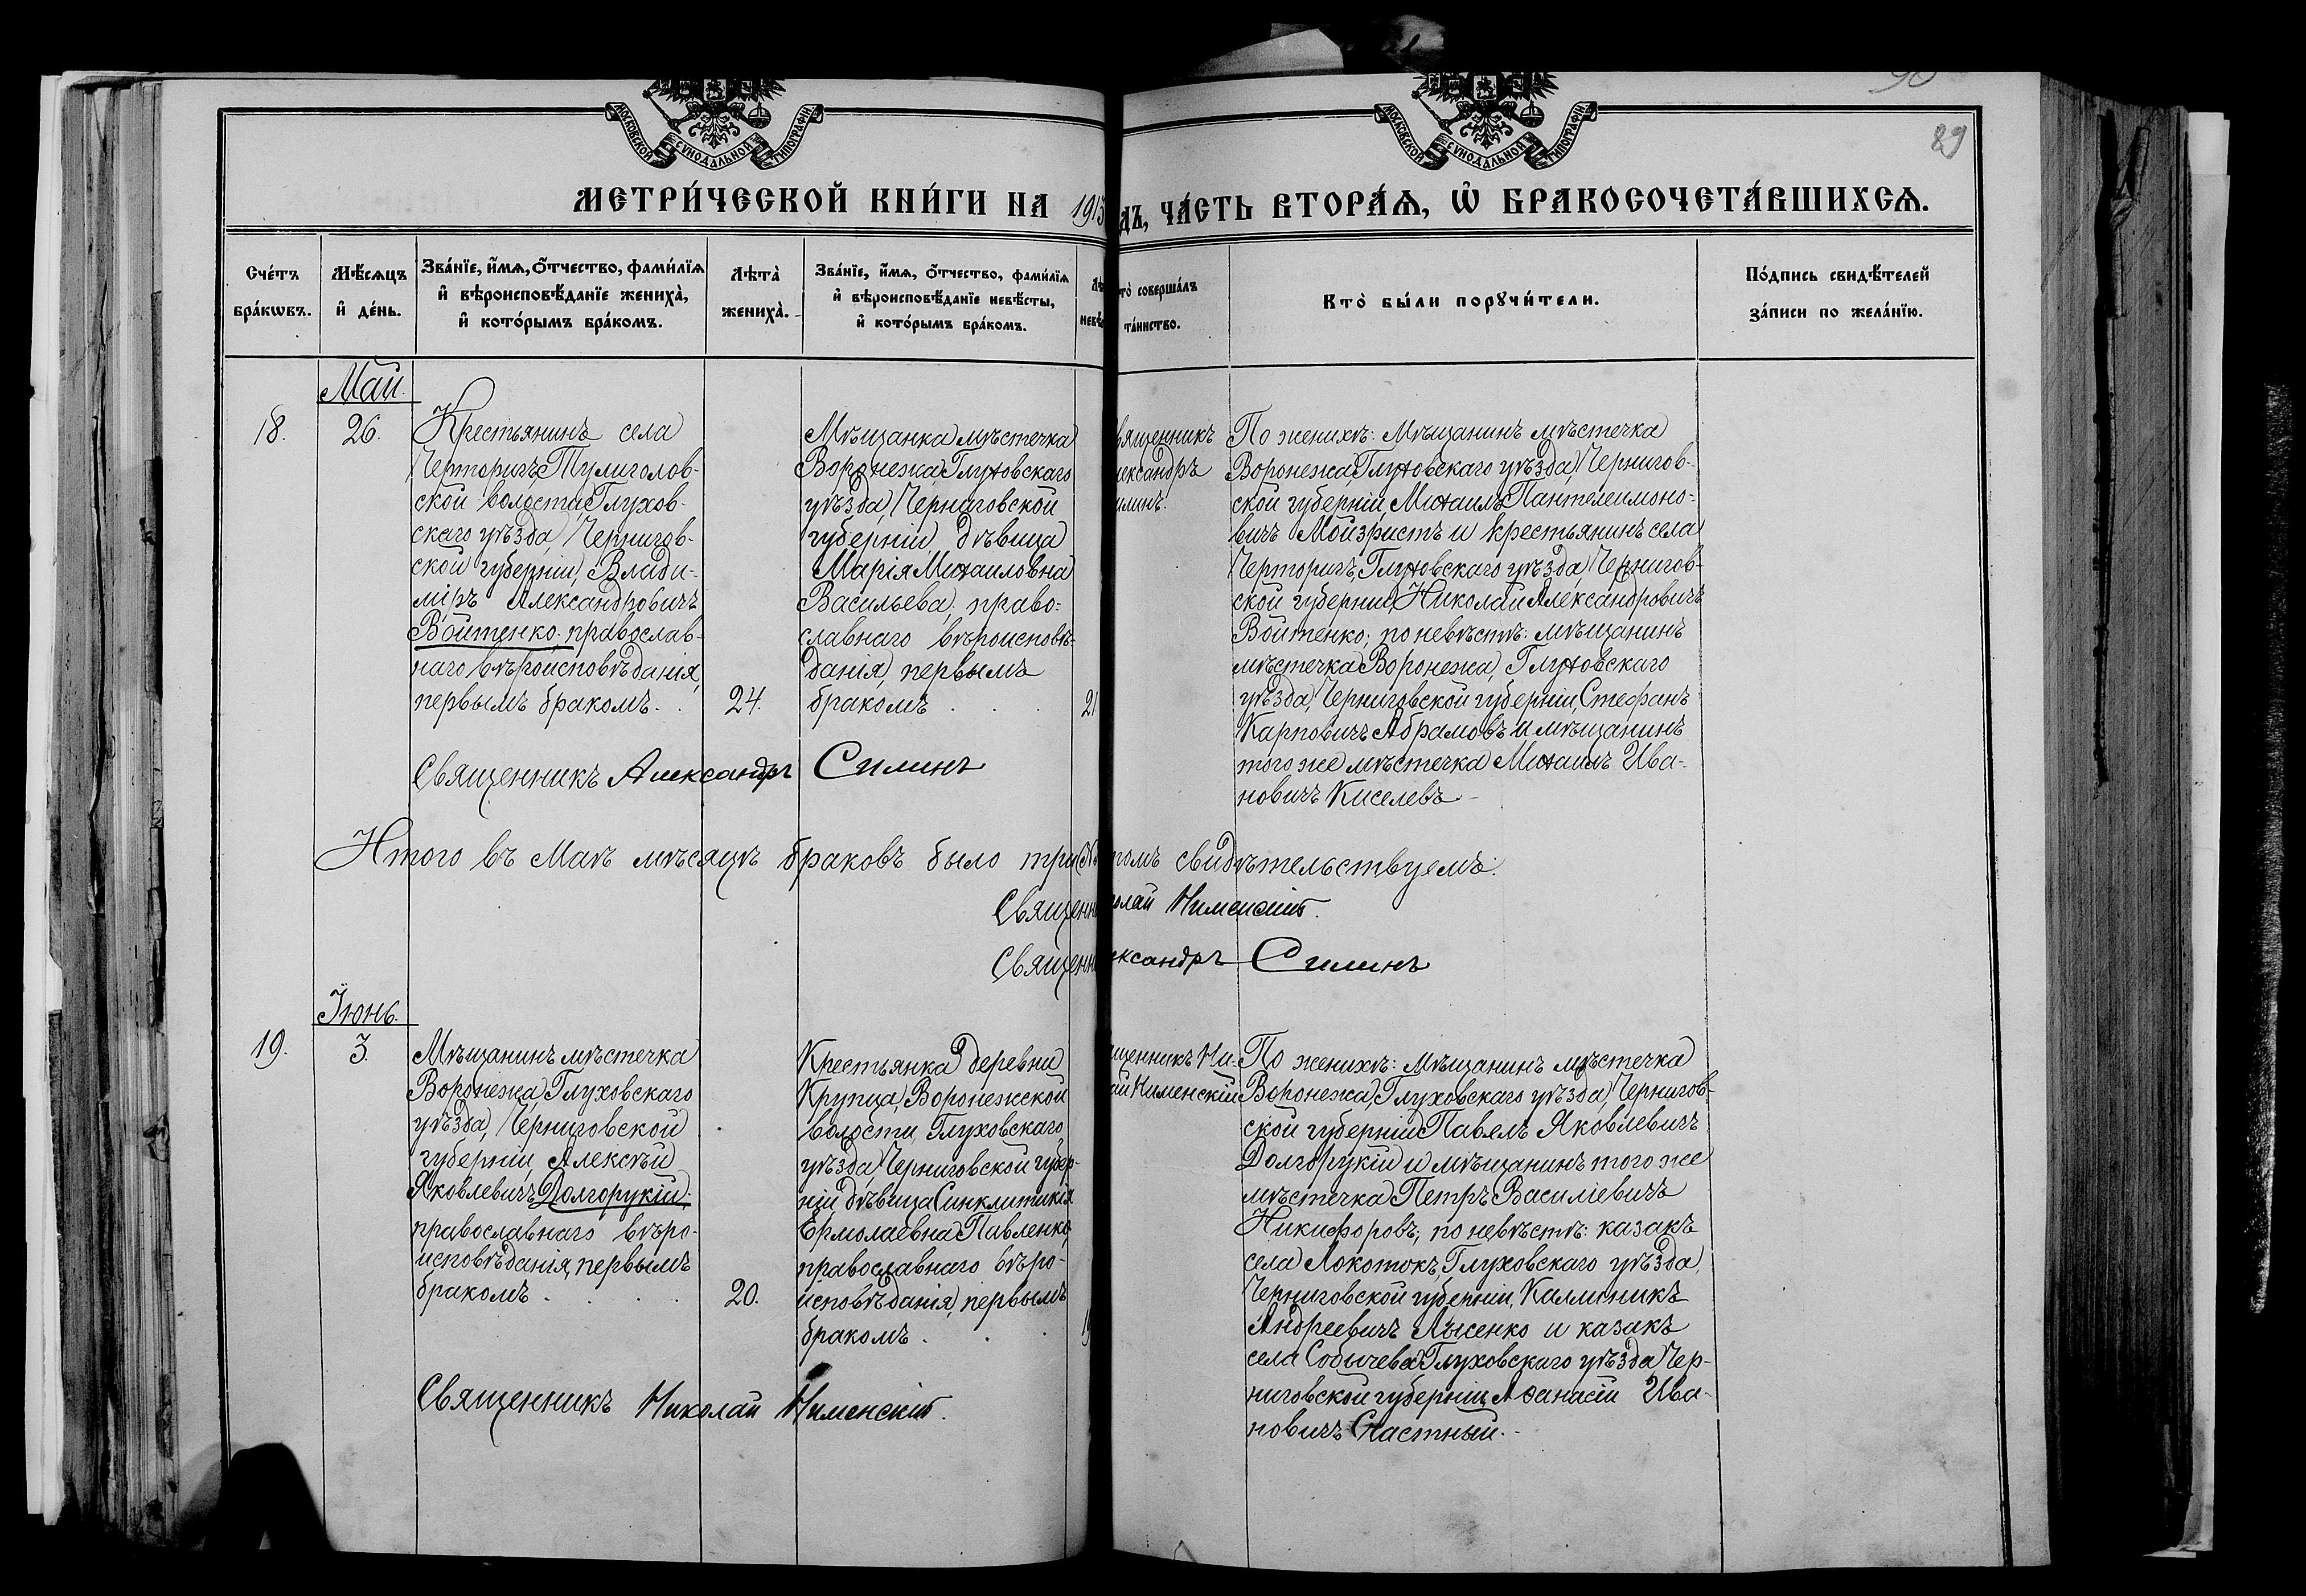 90
89
МОСКОВСКОЙ СУНОДАЛЬНОЙ ТИПОГРАФІИ.
МОСКОВСКОЙ СУНОДАЛЬНОЙ ТИПОГРАФІИ.
МЕТРИ́ЧЕСКОЙ КНИ́ГИ НА 1913
ДЪ, ЧА́СТЬ ВТОРА́Ѧ, Ѡ҆ БРАКОСОЧЕТА́ВШИХСѦ.
Сче́тъ
бра́кѡвъ.
Мѣ́сѧцъ
и҆ де́нь.
Зва́нїе, и҆́мѧ, ѻ҆́тчество, фами́лїѧ
и҆ вѣроисповѣ́данїе жениха̀,
и҆ кото́рымъ бра́комъ.
Лѣта̀
жениха̀.
Зва́нїе, и҆́мѧ, ѻ҆́тчество, фами́лїѧ
и҆ вѣроисповѣ́данїе невѣ́сты,
и҆ кото́рымъ бра́комъ.
Лѣ
невѣ
то̀ соверша́лъ
та́инство.
Кто̀ бы́ли порꙋчи́тели.
По́дпись свидѣ́телей
за́писи по жела́нїю.
Май.
18.
26.
Крестьянинъ села
Черторигъ, Тулиголов-
ской волости Глухов-
скаго уѣзда, Чернигов-
ской губерніи, Влади-
міръ Александровичъ
Войтенко, православ-
наго вѣроисповѣданія,
первымъ бракомъ. .
24.
Мѣщанка мѣстечка
Воронежа, Глуховскаго
уѣзда, Черниговской
губерніи, дѣвица
Марія Михаиловна
Васильева, право-
славнаго вѣроисповѣ-
данія, первымъ
бракомъ . . .
21
вященникъ
лександръ
илинъ.
По женихѣ: Мѣщанинъ мѣстечка
Воронежа, Глуховскаго уѣзда, Чернигов-
ской губерніи, Михаилъ Пантелеимоно-
вичъ Мойзристъ и крестьянинъ села
Черторигъ, Глуховскаго уѣзда, Чернигов-
ской губерніи, Николай Александровичъ
Войтенко; по невѣстѣ: мѣщанинъ
мѣстечка Воронежа, Глуховскаго
уѣзда, Черниговской губерніи, Стефанъ
Карповичъ Абрамовъ и мѣщанинъ
того же мѣстечка Михаилъ Ива-
новичъ Киселевъ
Священникъ Александръ Силинъ
Итого въ Маѣ мѣсяцѣ браковъ было три
томъ свидѣтельствуемъ:
Священн
олай Нименскій.
Священн
ександръ Силинъ
Іюнь.
19.
3.
Мѣщанинъ мѣстечка
Воронежа, Глуховскаго
уѣзда, Черниговской
губерніи, Алексѣй
Яковлевичъ Долгорукій,
православнаго вѣро-
исповѣданія, первымъ
бракомъ . . . .
20.
Крестьянка деревни
Крупца, Воронежской
волости, Глуховскаго
уѣзда, Черниговской губер-
ніи дѣвица Синклитикія
Ермолаевна Павленко,
православнаго вѣро-
исповѣданія, первымъ
бракомъ . . .
19
щенникъ Ни-
ай Нименскій
По женихѣ: Мѣщанинъ мѣстечка
Воронежа, Глуховскаго уѣзда, Чернигов-
ской губерніи Павелъ Яковлевичъ
Долгорукій и мѣщанинъ того же
мѣстечка Петръ Василіевичъ
Никифоровъ; по невѣстѣ: казакъ
села Локотокъ, Глуховскаго уѣзда,
Черниговской губерніи, Каллиникъ
Андреевичъ Лысенко и казакъ
села Собычева, Глуховскаго уѣзда Чер-
ниговской губерніи, Аѳанасій Ива-
новичъ Счастный.
Священникъ Николай Нименскій.